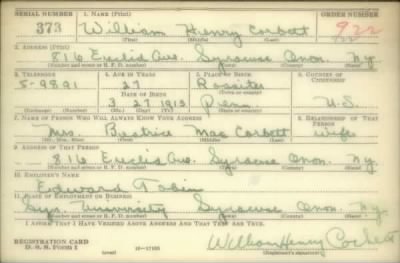 SERIAL NUMBER 1. NAME (Print) ORDER NUMBER
373 William Henry Corbett 922
(First) (Middle) (Last)
2. ADDRESS (Print)
816 Euclid Ave. Syracuse Onon. Ny.
(Number and street or R. F. D. number) (Town) (County) (State)
3. TELEPHONE 4. AGE IN YEARS 5. PLACE OF BIRTH 6. COUNTRY OF CITIZENSHIP
5-9891 27 Rossiter
DATE OF BIRTH
3 27 1913 Penn. U.S.
(Exchange) (Number) (Mo.) (Day) (Yr.) (State or country)
7. NAME OF PERSON WHO WILL ALWAYS KNOW YOUR ADDRESS 8. RELATIONSHIP OF THAT PERSON
Mrs. Beatrice Mae Corbett wife
(Mr., Mrs., Miss) (First) (Middle) (Last)
9. ADDRESS OF THAT PERSON
816 Euclid Ave. Syracuse Onon. Ny.
(Number and street or R. F. D. number) (Town) (County) (State)
10. EMPLOYER'S NAME
Edward Tobin
11. PLACE OF EMPLOYMENT OR BUSINESS
Syr. University Syracuse Onon. Ny.
(Number and street or R. F. D. number) (Town) (County) (State)
I AFFIRM THAT I HAVE VERIFIED ABOVE ANSWERS AND THAT THEY ARE TRUE.
REGISTRATION CARD
D. S. S. Form 1 (over) 16-17105
William Henry Corbett
(Registrant's signature)